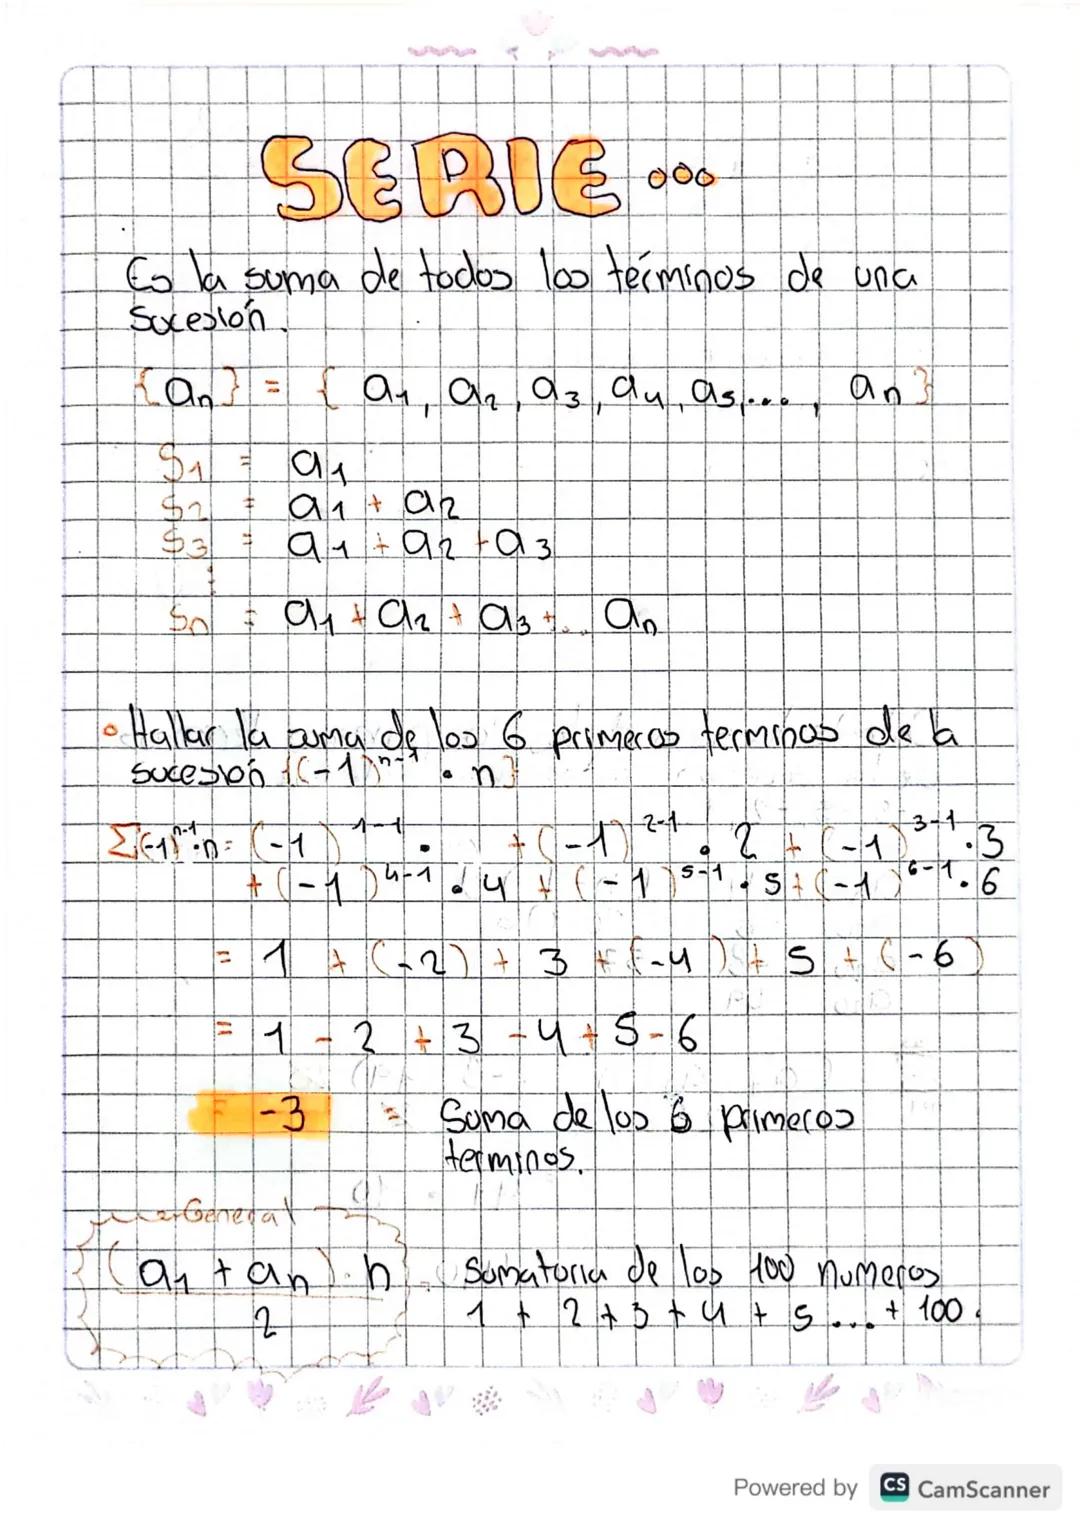 SERIE...
Es la suma de todos los términos de una
Sucesión.
{an} = { a1, a2, a3, a4, a5,..., an}
S1 = a1
S2 = a1 + a2
S3 = a1 + a2 + a3
⋮
Sn = a1 + a2 + a3 +... an
• Hallar la suma de los 6 primeros terminos de la
sucesión {(-1)^n-1 • n}
Σ(-1)^n-1 • n = (-1)^1-1 • + (-1)^2-1 • 2 + (-1)^3-1 • 3
+ (-1)^4-1 • 4 + (-1)^5-1 • 5 + (-1)^6-1 • 6
= 1 + (-2) + 3 + (-4) + 5 + (-6)
= 1 - 2 + 3 - 4 + 5 - 6
= -3 = Suma de los 6 primeros
terminos.
General
(a1 + an) • n Sumatoria de los 100 numeros
2 1 + 2 + 3 + 4 + 5 ... + 100.
Powered by CS CamScanner